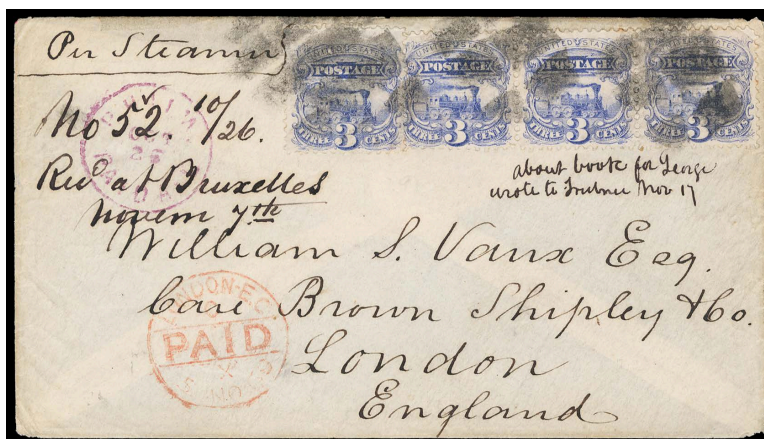 Per Steamer
UNITED STATES POSTAGE THREE 3 CENTS
UNITED STATES POSTAGE THREE 3 CENTS
UNITED STATES POSTAGE THREE 3 CENTS
UNITED STATES POSTAGE THREE 3 CENTS
No 52. 10/26.
Recd at Bruxelles
Novem 7th
about book for George
wrote to Trubner Nov 17
William S. Vaux Esq.
Care Brown Shipley & Co.
London
England
LONDON-E.C
PAID